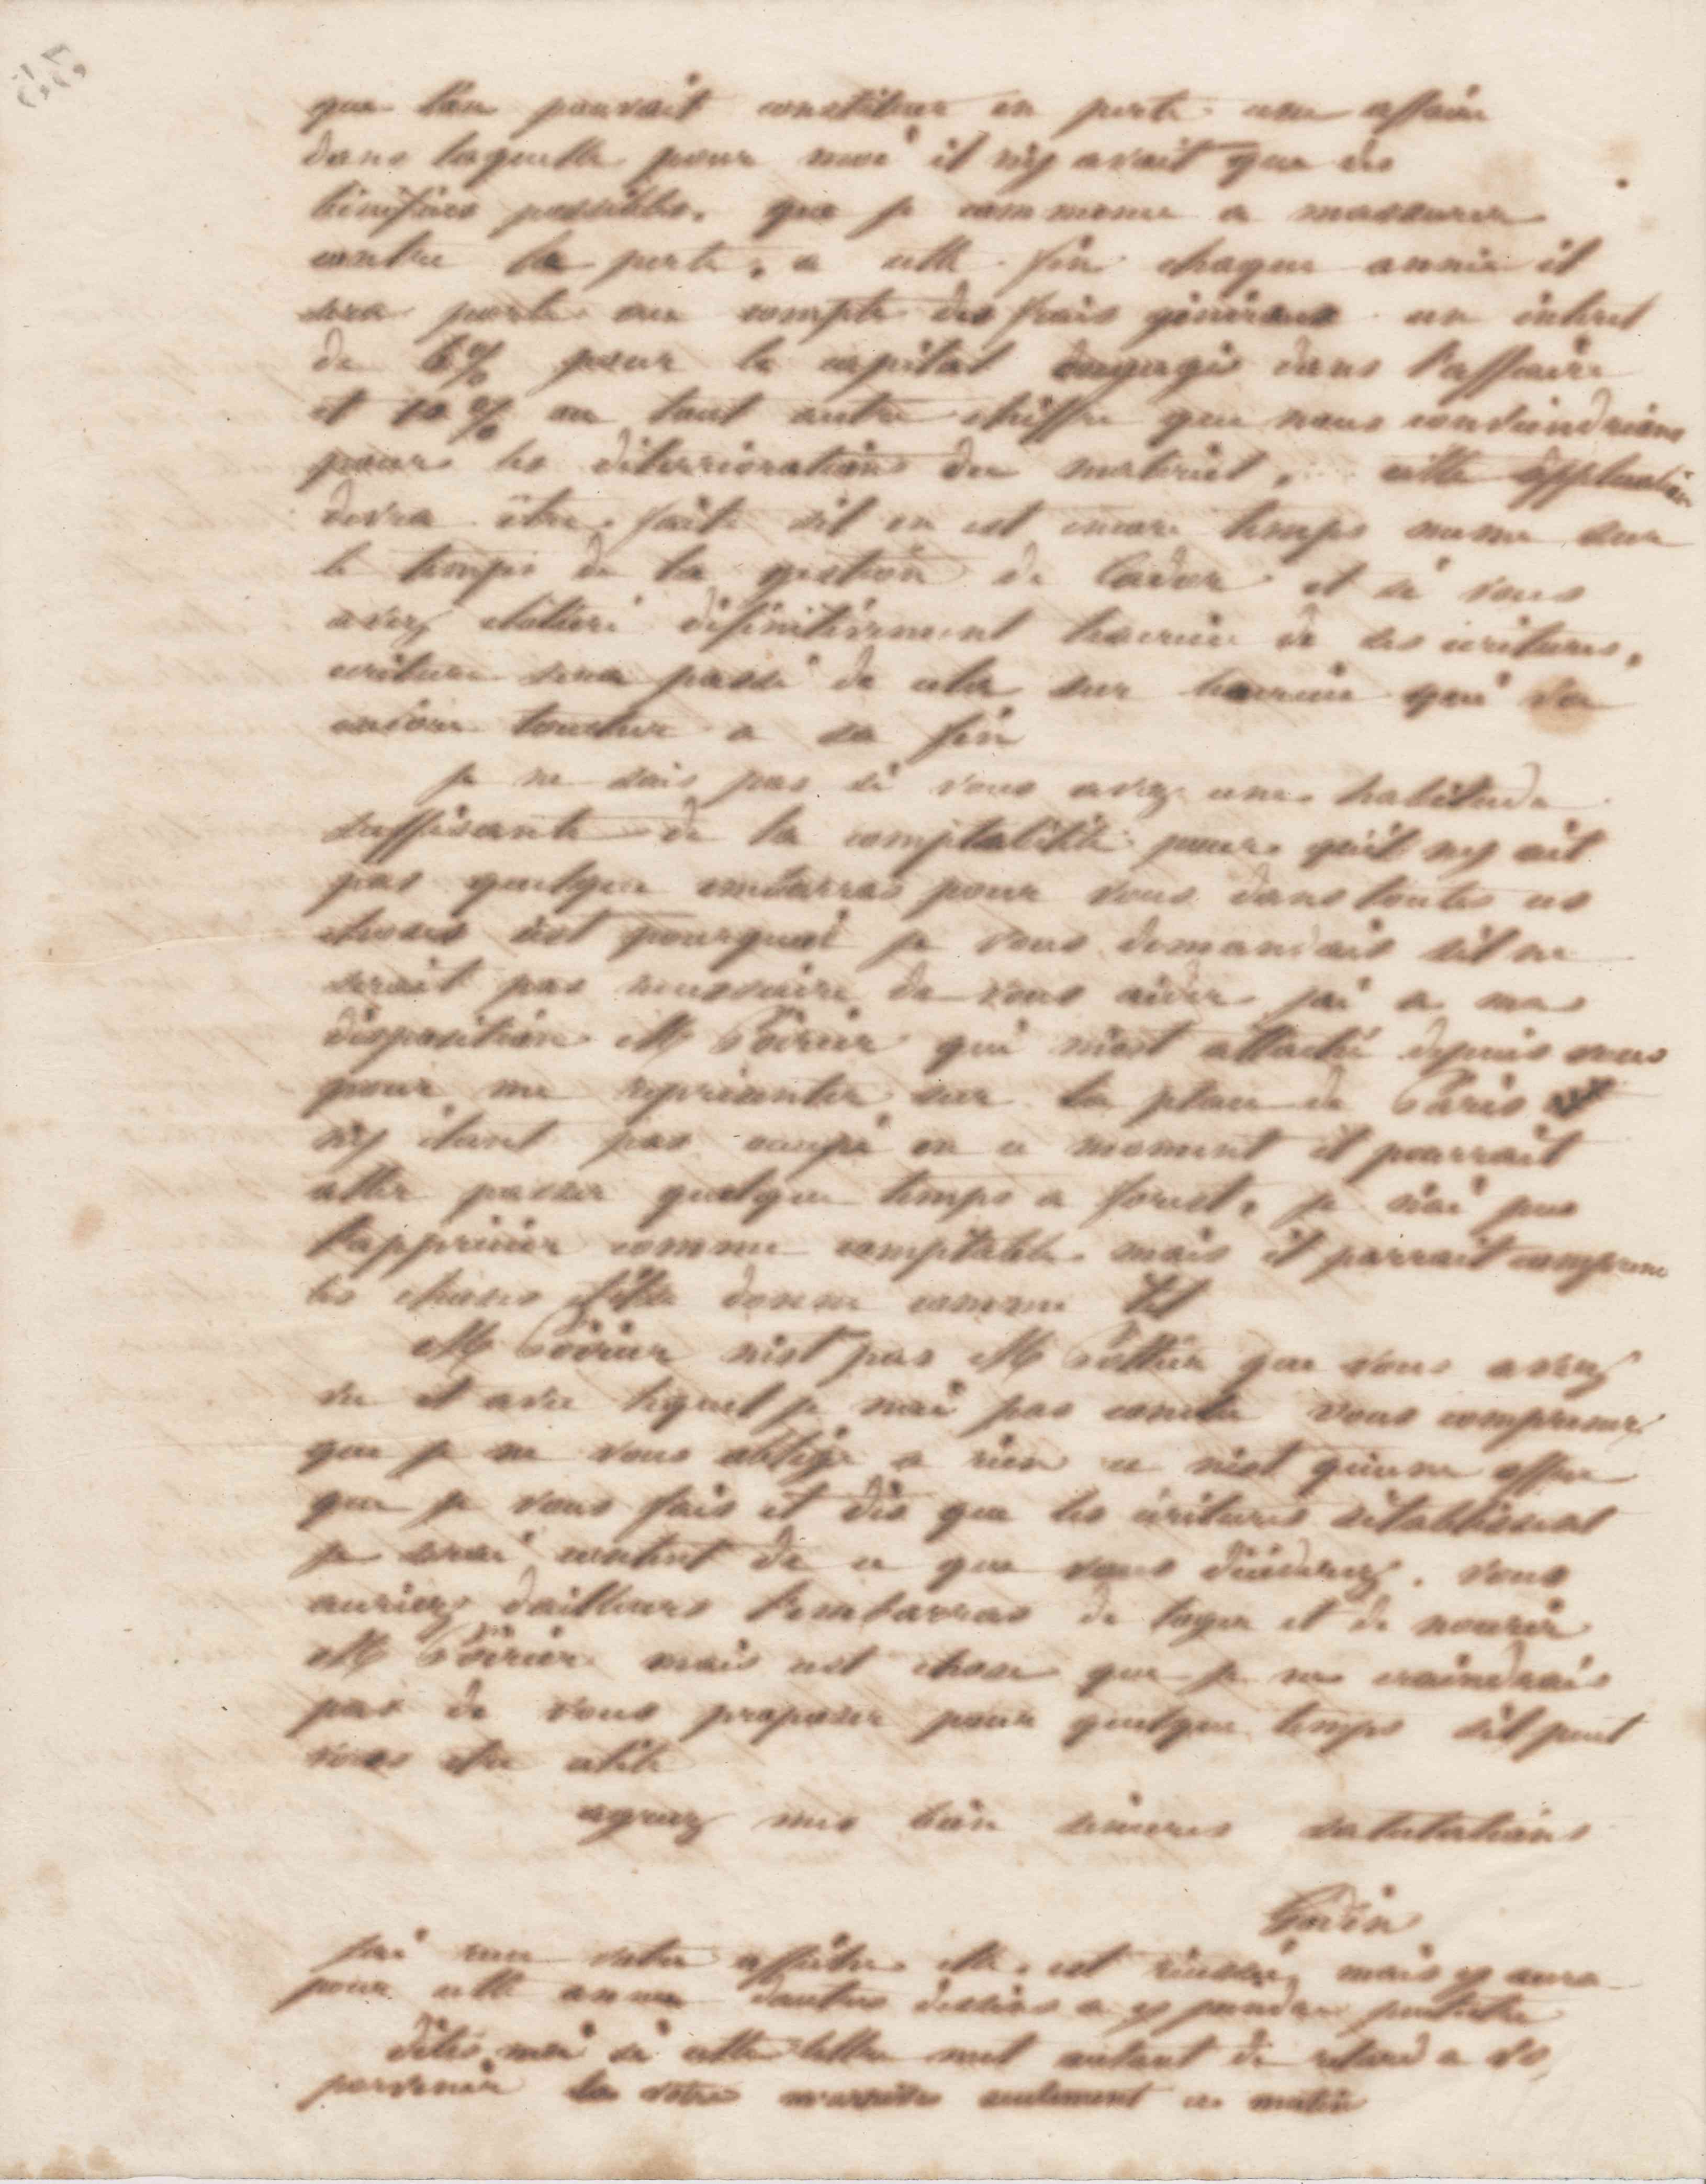 que l'on pouvait constituer en perte une affaire
dans laquelle pour moi il n'y avait que des
bénéfices possibles. que je commence a massurer
contre la perte, a cette fin chaque année il
sera porté au compte des frais généraux un intéret
de 6% pour le capital engagé dans l'affaire
et 10% ou tout autre chiffre que nous conviendrions
pour les déterriorations du matériel, cette application
devra être faite sil en est encore temps meme sur
le temps de la gestion de Cador et si vous
avez cloturé définitivement lexercice de ses écritures,
écriture sera passé de cela sur lexercice qui va
encore toucher a sa fin
je ne sais pas si vous avez une habitude
suffisante de la comptabilité pour qu'il n'y ait
pas quelque embarras pour vous dans toutes ces
choses cest pourquoi je vous demandais sil ne
serait pas necessaire de vous aider jai a ma
disposition Mr Poirier qui m'est attaché depuis vous
pour me représenter sur la place de Paris
n'y étant pas occupé en ce moment il pourrait
aller passer quelque temps a forest, je n'ai pu
l'apprécier comme comptable mais il parrait comprendre
les choses et se donne comme tel
Mr Poirier nest pas Mr Pottier que vous avez
vu et avec lequel je nai pas conclu vous comprenez
que je ne vous oblige a rien ce nest qu'une offre
que je vous fais et dès que les écritures sétablissent
je serai content de ce que vous déciderez. vous
auriez dailleurs l'embarras de loger et de nourrir
Mr Poirier mais cest chose que je ne craindrais
pas de vous proposer pour quelque temps sil peut
vous etre utile
agréez mes bien sincères salutations
Godin
jai reçu votre affiche elle est réussie, mais y aura
pour cette année dautres dessins a y prendre peut être
dites moi si cette lettre met autant de retard a vs
parvenir la votre marrive seulement ce matin